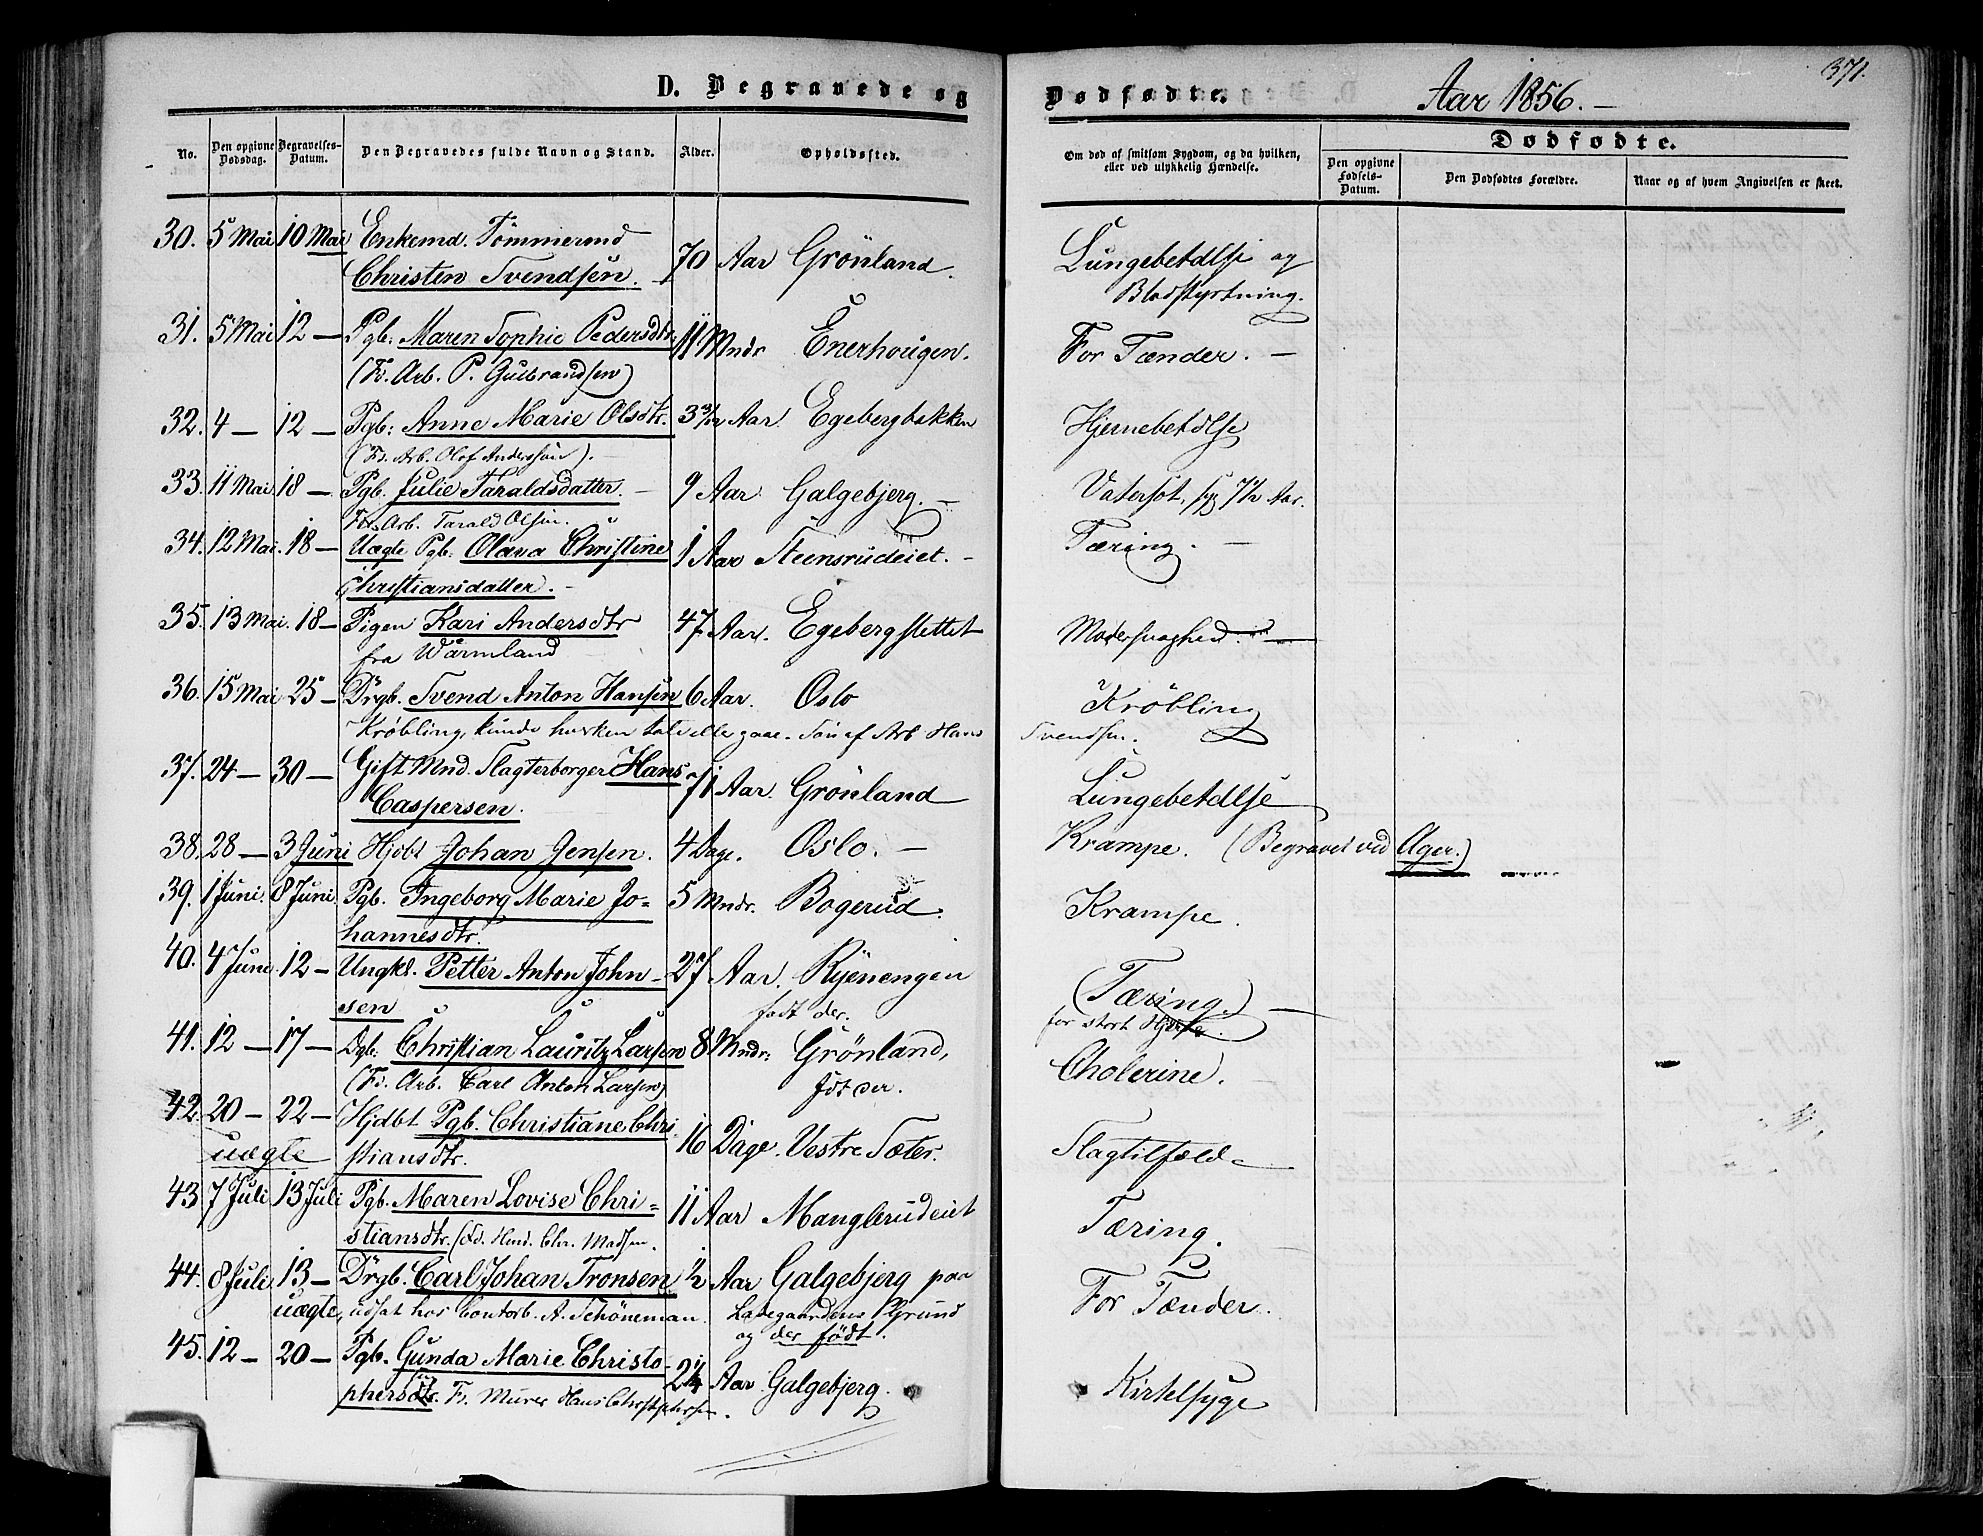 D. Begravede og Dødfødte. Aar 1856. — 371.
Dødfødte.
No. Den opgivne Dødsdag. Begravelses-Datum. Den Begravedes fulde Navn og Stand. Alder. Opholdssted. Om død af smitsom Sygdom, og da hvilken, eller ved ulykkelig Hændelse. Den opgivne Fødsels-Datum. Den Dødfødtes Forældre. Naar og af hvem Angivelsen er skeet.
30. 5 Mai 10 Mai Enkemd. Tømmermd
Christen Svendsen. 70 Aar Grönland. Lungebetdlse og
Blodstyrtning.
31. 5 Mai 12 — Pgb: Maren Sophie Pedersdtr 11 Mndr Enerhougen. For Tænder. —
(F. Arb. P. Gulbrandsen)
32. 4 — 12 — Pgb: Anne Marie Olsdtr. 3 3/12 Aar. Egebergbakken Hjernebetdlse
(F. Arb. Olof Anderssön). —
33. 11 Mai 18 — Pgb. Julie Taraldsdatter. — 9 Aar Galgebjerg. — Vatersot, syg 7½ Aar.
F. Arb. Tarald Olsen.
34. 12 Mai. 18 — Uægte Pgb. Olava Christine 1 Aar Steensrudeiet. — Tæring. —
Christiansdatter. —
35. 13 Mai. 18 — Pigen Kari Andersdtr 47 Aar. Egebergslettet Modersvaghed.
fra Wärmland
36. 15 Mai 25 — Drgb. Svend Anton Hansen 6 Aar. Oslo Kröbling
Krøbling, kunde hverken tale eller gaae. Søn af Arb Hans Svendsen.
37. 24 — 30 — Gift Mnd. Slagterborger Hans
Caspersen. 71 Aar. Grönland Lungebetdlse
38. 28 — 3 Juni Hjdbt Johan Jensen. 4 Dage. Oslo. — Krampe. (Begravet ved Ager.)
39. 1 Juni. 8 Juni. Pgb. Ingeborg Marie Jo=
hannesdtr. 5 Mndr. Bogerud. Krampe.
40. 4 Juni 12 — Ungkl. Petter Anton John-
sen 27 Aar. Ryenengen (Tæring.) —
født der. for stort Hjerte.
41. 12 — 17 — Dgb: Christian Lauritz Larsen 8 Mndr: Grönland, Cholerine.
(F. Arb. Carl Anton Larsen) født der.
42. 20 — 22 — Hjdbt Pgb. Christiane Chri
uægte stiansdtr. 16 Dage. Vestre Sæter. Slagtilfæld
43. 7 Juli 13 Juli Pgb. Maren Lovise Chri=
stiansdtr. (Fd. Hmd. Chr. Madsen. 11 Aar Manglerudeiet Tæring.
44. 8 Juli 13 — Drgb. Carl Johan Tronsen ½ Aar Galgebjerg paa For Tænder.
uægte, udsat hos Contorb. A. Schöneman. Ladegaardens Grund
og der født.
45. 12 — 20 — Pgb. Gunda Marie Christo-
phersdtr. F. Murer Hans Christophersen. 24 Aar Galgebjerg. Kirtelsyge